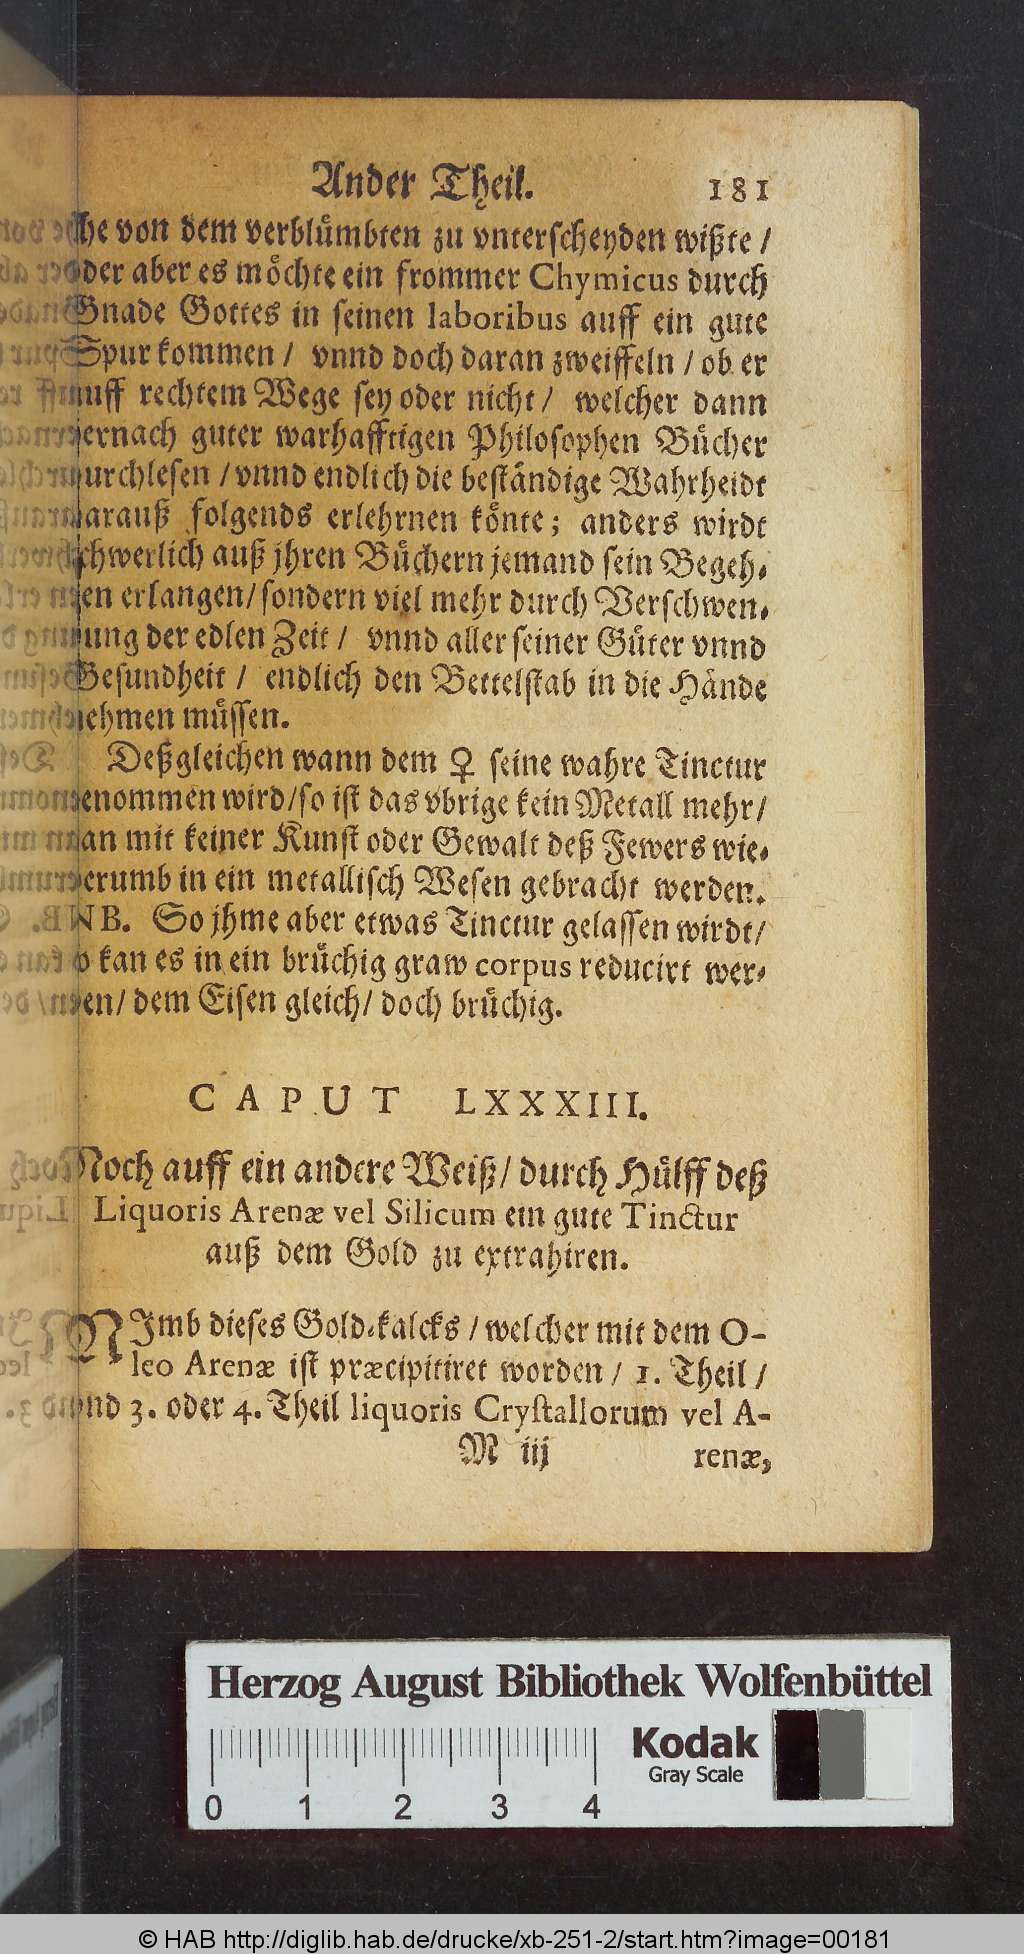 Ander Theil. 181
che von dem verblůmbten zu vnterscheyden wißte /
oder aber es mőchte ein frommer Chymicus durch
Gnade Gottes in seinen laboribus auff ein gute
Spur kommen / vnnd doch daran zweiffeln / ob er
auff rechtem Wege sey oder nicht / welcher dann
hernach guter warhafftigen Philosophen Bůcher
durchlesen / vnnd endlich die beståndige Wahrheidt
darauß folgends erlehrnen kőnte; anders wirdt
schwerlich auß jhren Bůchern jemand sein Begeh-
ren erlangen / sondern viel mehr durch Verschwen-
dung der edlen Zeit / vnnd aller seiner Gůter vnnd
Gesundheit / endlich den Bettelstab in die Hånde
nehmen můssen.
Deßgleichen wann dem ♀ seine wahre Tinctur
genommen wird / so ist das vbrige kein Metall mehr /
kan mit keiner Kunst oder Gewalt deß Fewers wie-
derumb in ein metallisch Wesen gebracht werden.
NB. So jhme aber etwas Tinctur gelassen wirdt /
so kan es in ein brůchig graw corpus reducirt wer-
den / dem Eisen gleich / doch brůchig.
CAPUT LXXXIII.
Noch auff ein andere Weiß / durch Hůlff deß
Liquoris Arenæ vel Silicum ein gute Tinctur
auß dem Gold zu extrahiren.
NImb dieses Gold-kalcks / welcher mit dem O-
leo Arenæ ist præcipitiret worden / 1. Theil /
vnd 3. oder 4. Theil liquoris Crystallorum vel A-
M iij renæ,
Herzog August Bibliothek Wolfenbüttel
Kodak
Gray Scale
0 1 2 3 4
© HAB http://diglib.hab.de/drucke/xb-251-2/start.htm?image=00181